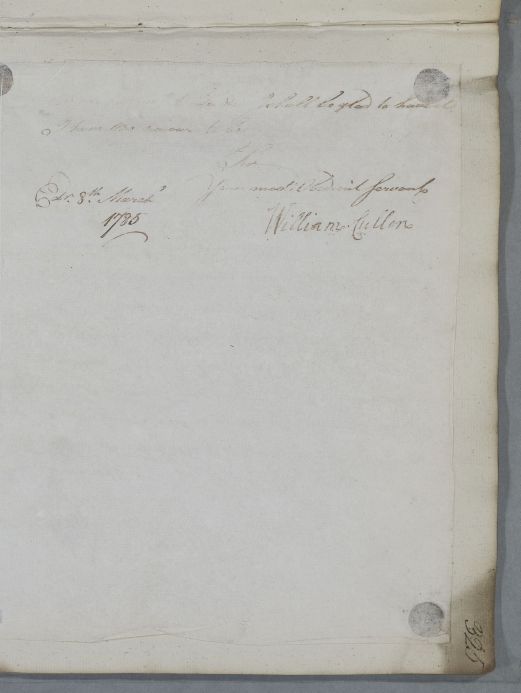 I shall be glad to have
I have the honour to be
Sir
Your most Obedient Servant
Edr. 8th. March
1785
William Cullen